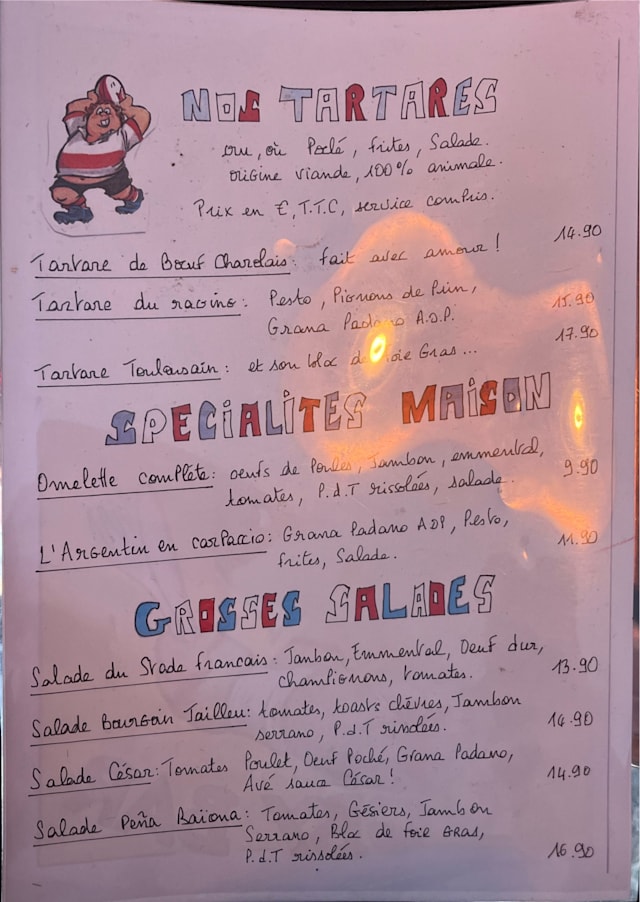 NOS TARTARES
cru, où Poélé, frites, Salade.
origine viande, 100% animale.
Prix en €, T.T.C, service compris.
Tartare de Bœuf Charolais: fait avec amour! 14.90
Tartare du racing: Pesto, Pignons de Pin, 15.90
Grana Padano A.O.P.
Tartare Toulousain: et son bloc de foie Gras... 17.90
SPECIALITES MAISON
Omelette complète: oeufs de Poules, Jambon, emmental, 9.90
tomates, P.d.T rissolées, salade.
L'Argentin en carpaccio: Grana Padano AOP, Pesto, 11.90
frites, Salade.
GROSSES SALADES
Salade du Stade francais: Jambon, Emmental, Oeuf dur, 13.90
champignons, tomates.
Salade Bourgoin Jailleu: tomates, toasts chèvres, Jambon 14.90
serrano, P.d.T rissolées.
Salade César: Tomates Poulet, Oeuf Poché, Grana Padano, 14.90
Avé sauce César!
Salade Peña Baïona: Tomates, Gésiers, Jambon
Serrano, Bloc de foie GRAS,
P.d.T rissolées. 16.90